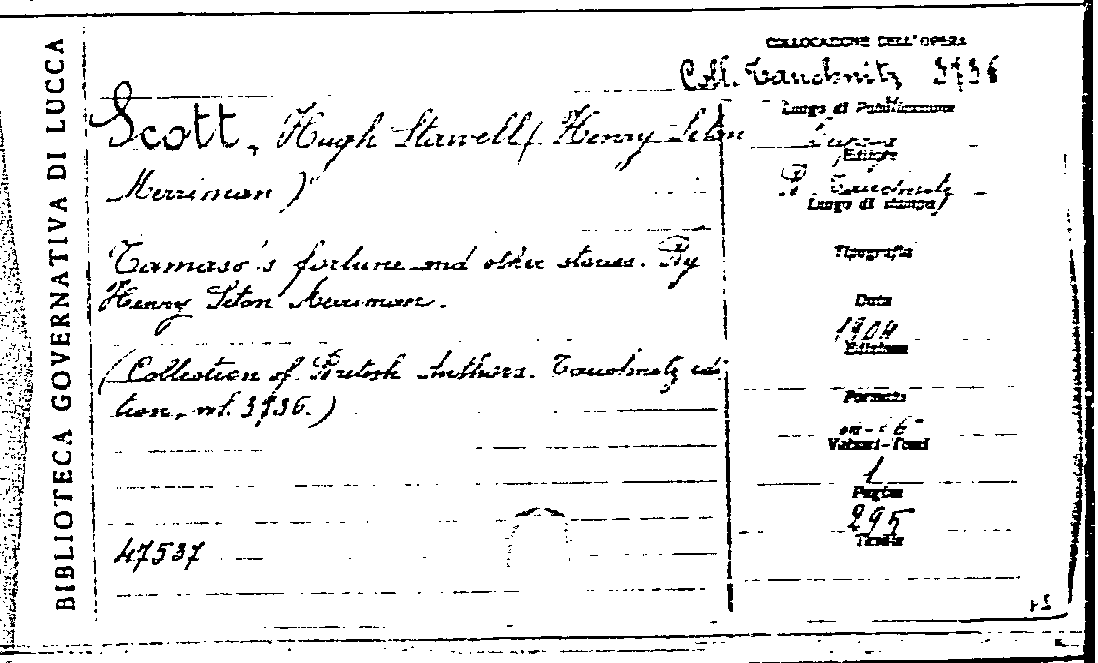 BIBLIOTECA GOVERNATIVA DI LUCCA
COLLOCAZIONE DELL'OPERA
Coll. Tauchnitz 3736
Scott, Hugh Stawell (Henry Seton
Merriman)
Tomaso's fortune and other stories. By
Henry Seton Merriman.
(Collection of British Authors. Tauchnitz edi-
tion, vol. 3736.)
47537
Luogo di Pubblicazione
Editore
B. Tauchnitz
Luogo di stampa
Tipografia
Data
1904
Edizione
Formato
in-16°
Volumi-Tomi
1
Pagine
295
Tavole